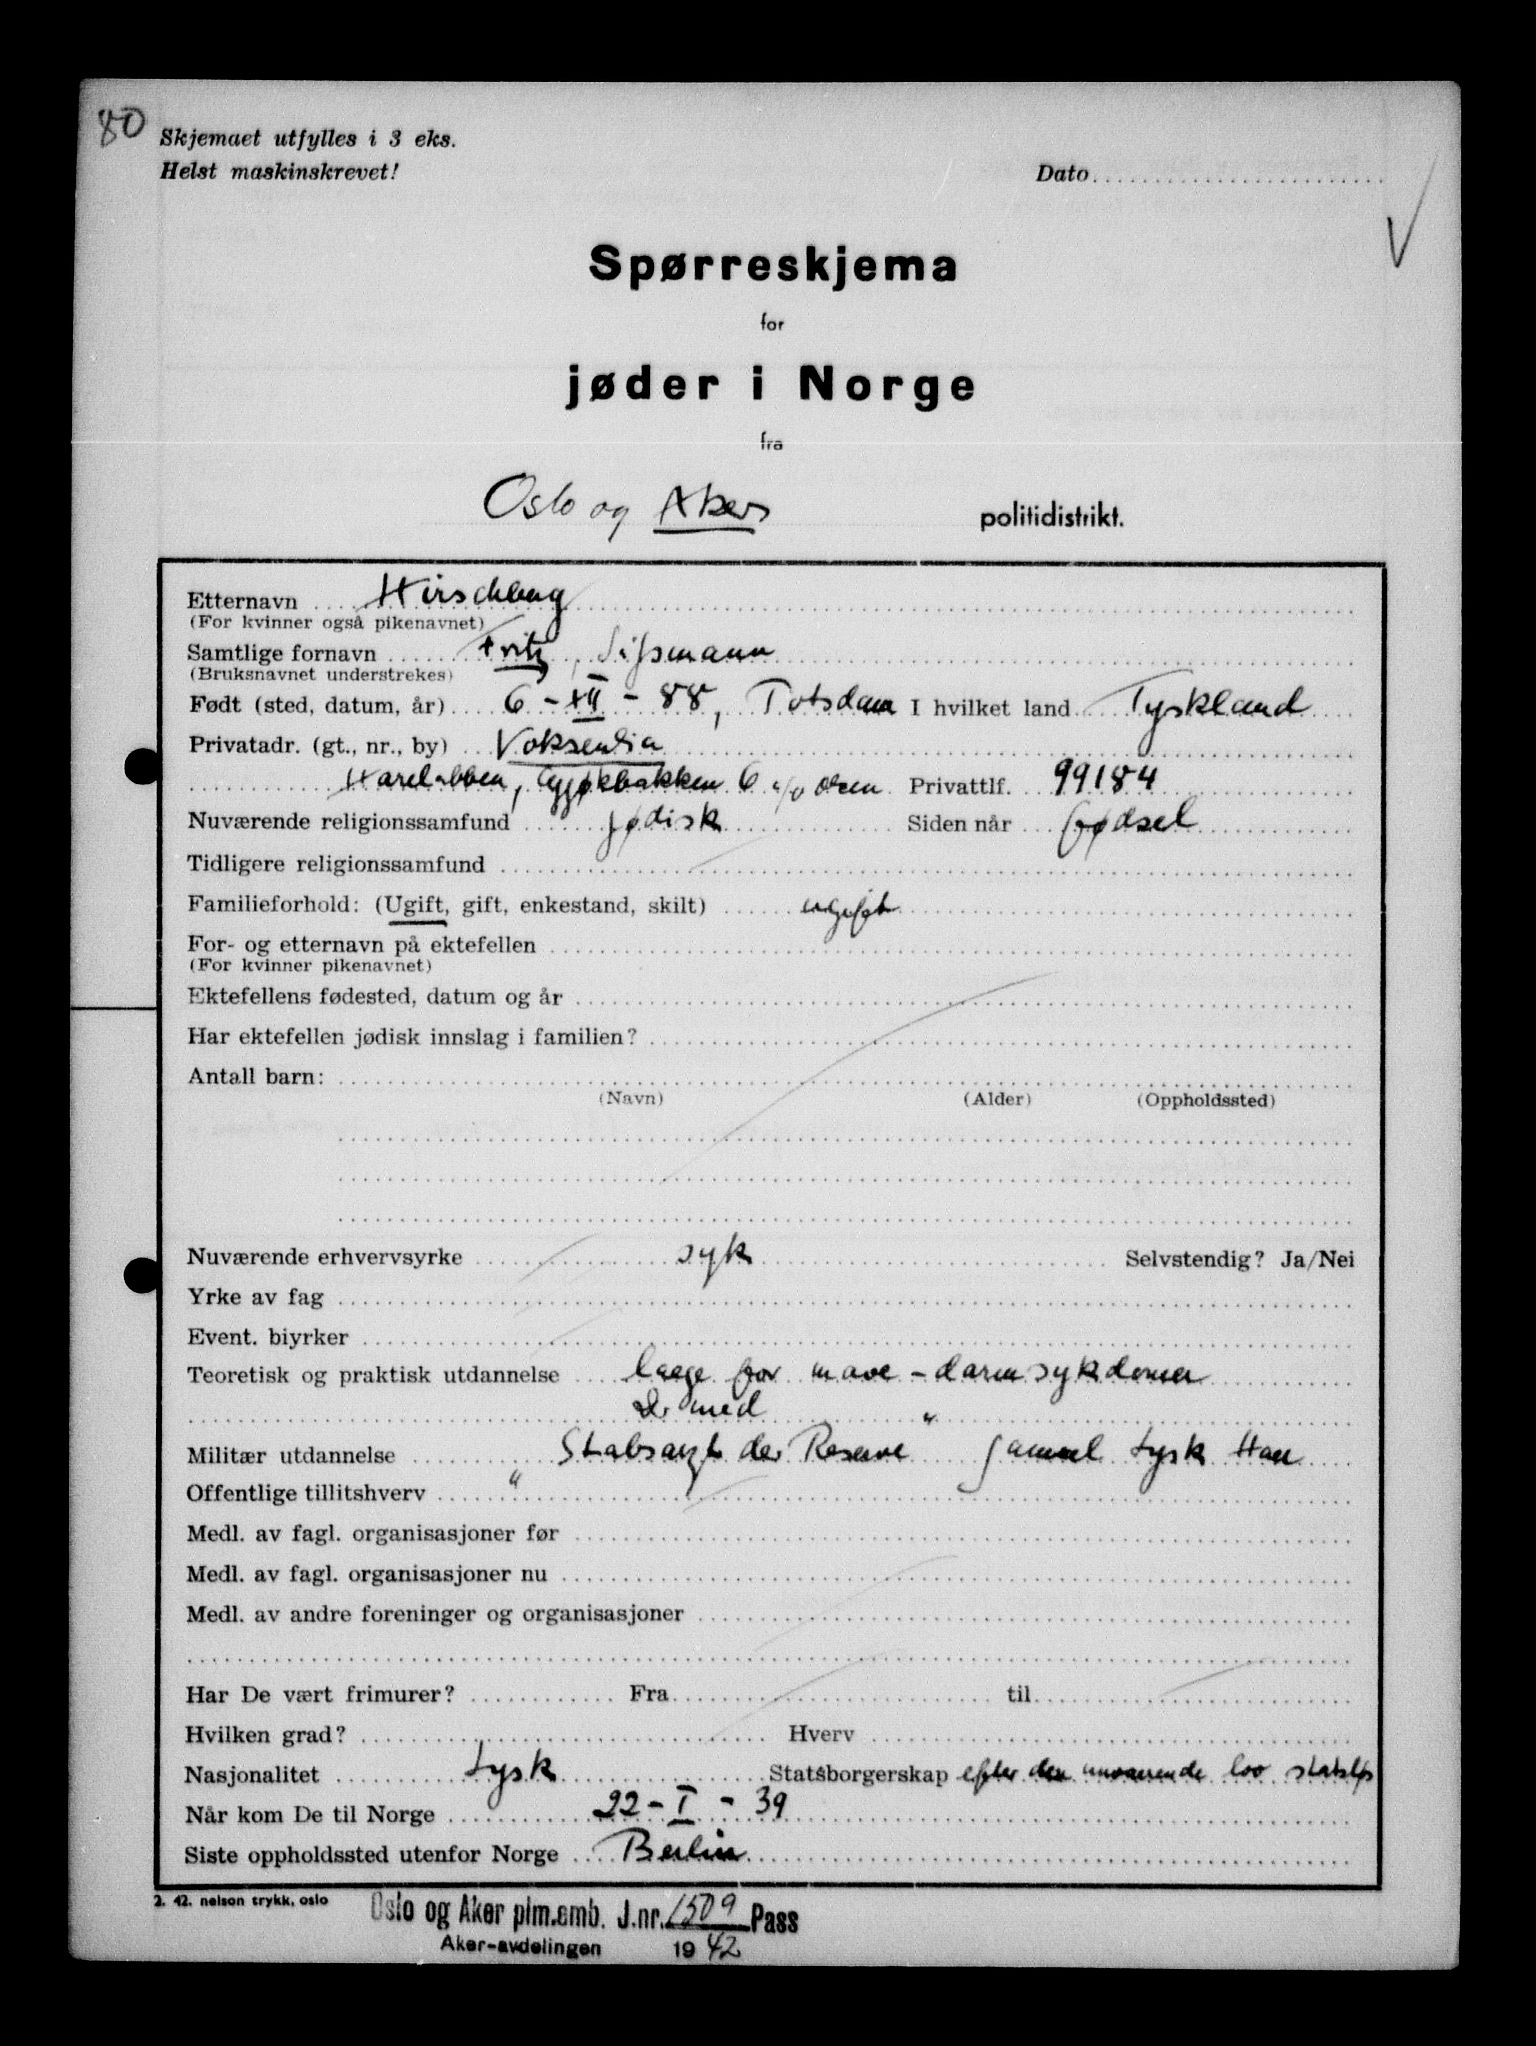 80
Skjemaet utfylles i 3 eks.
Helst maskinskrevet!
Dato
Spørreskjema
for
jøder i Norge
fra
Oslo og Aker politidistrikt.
Etternavn Hirschberg
(For kvinner også pikenavnet)
Samtlige fornavn Fritz,
(Bruksnavnet understrekes)
Født (sted, datum, år) 6-XII-88, Potsdam I hvilket land Tyskland
Privatadr. (gt., nr., by) Voksenlia
Harelabben, 6 c/o Privattlf. 99184
Nuværende religionssamfund jødisk Siden når fødsel
Tidligere religionssamfund
Familieforhold: (Ugift, gift, enkestand, skilt) ugift
For- og etternavn på ektefellen
(For kvinner pikenavnet)
Ektefellens fødested, datum og år
Har ektefellen jødisk innslag i familien?
Antall barn:
(Navn) (Alder) (Oppholdssted)
Nuværende erhvervsyrke syk Selvstendig? Ja/Nei
Yrke av fag
Event. biyrker
Teoretisk og praktisk utdannelse laege for mave-darmsykdomer
Dr med
Militær utdannelse "Stabsarzt der Reserve" gammel tysk
Offentlige tillitshverv
Medl. av fagl. organisasjoner før
Medl. av fagl. organisasjoner nu
Medl. av andre foreninger og organisasjoner
Har De vært frimurer? Fra til
Hvilken grad? Hverv
Nasjonalitet tysk Statsborgerskap efter den nuværende lov statsløs
Når kom De til Norge 22-I-39
Siste oppholdssted utenfor Norge Berlin
2. 42. nelson trykk, oslo
Oslo og Aker plm.emb. J.nr. 1509 Pass
Aker-avdelingen 1942